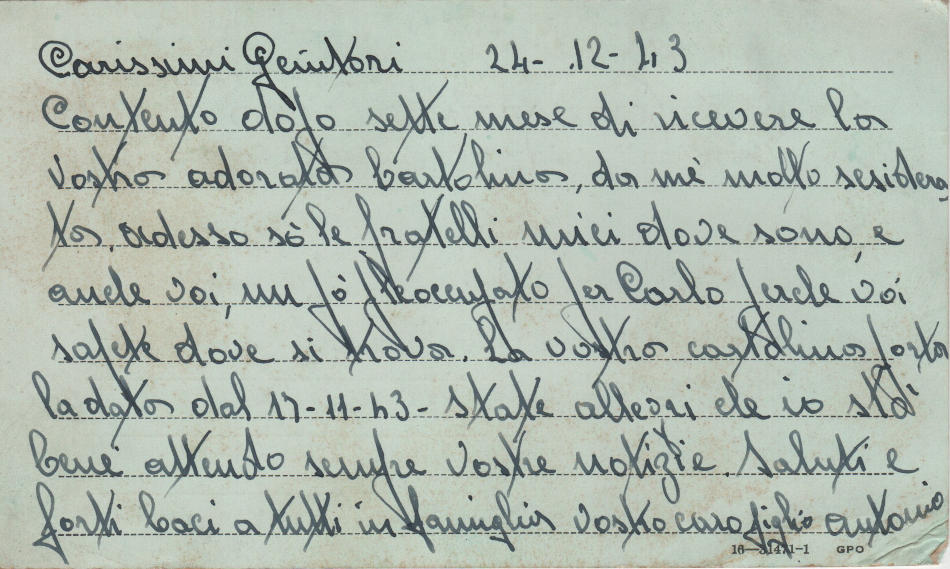 Carissimi Genitori 24-.12-43
Contento dopo sette mese di ricevere la
vostra adorata Cartolina, da mè molto sesidera-
ta, adesso sò le fratelli miei dove sono, e
anche voi, un pò preoccupato per Carlo perche voi
sapete dove si trova. La vostra cartolina porta
la data dal 17-11-43- State allegri che io stò
bene attendo sempre vostre notizie. Saluti e
forti baci a tutti in famiglia vostro caro figlio antonio
16—31471-1 GPO